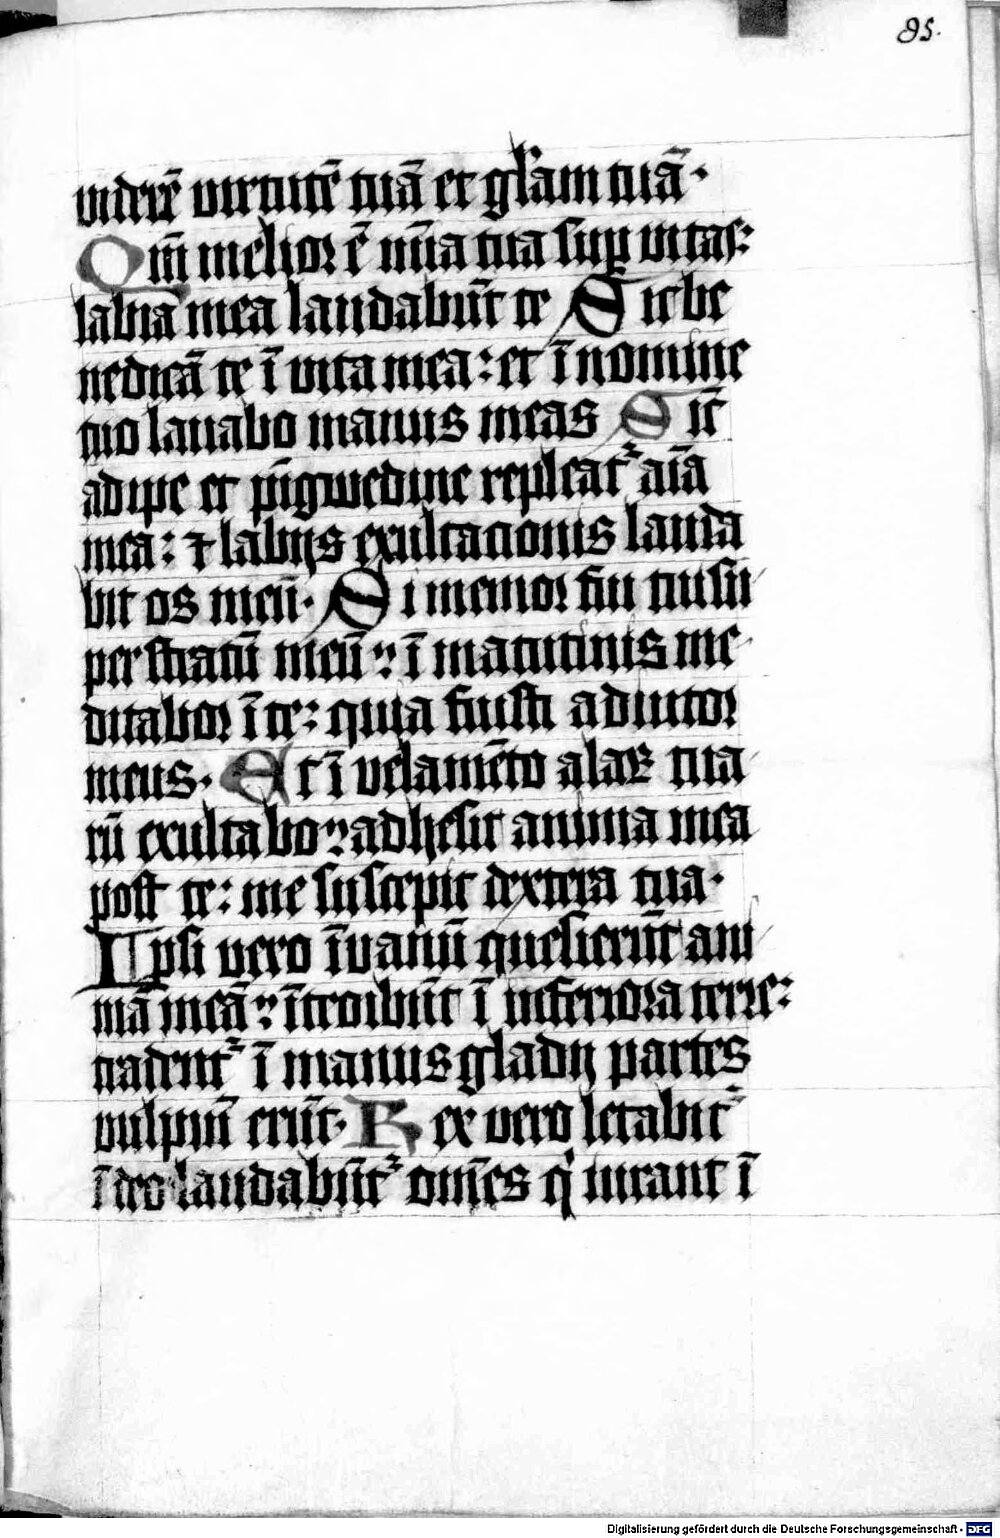 85.
viderē virtutē tuā et gl'am tuā·
Qm̄ melior ē mīa tua sup̱ vitas:
labia mea laudabūt te Sic be
nedicā te ī vita mea: et ī nomine
tuo lauabo manus meas Sic
adipe et pīgwedine repleat᷑ aīa
mea: ⁊ labijs exultacionis lauda
bit os meū· Si memor fui tui su
per stratū meū: ī matutinis me
ditabor ī te: quia fuisti adiutor
meus· Et ī velamēto alaꝝ tua
rū exultabo: adhesit anima mea
post te: me suscepit dextera tua·
Ipsi vero ī vanū quesierūt ani
mā meā: ītroibūt ī inferiora terre:
tradent᷑ ī manus gladij partes
vulpiū erūt· Rex vero letabit᷑
ī deo laudabūt᷑ om̄es q̇ iurant ī
Digitalisierung gefördert durch die Deutsche Forschungsgemeinschaft - DFG